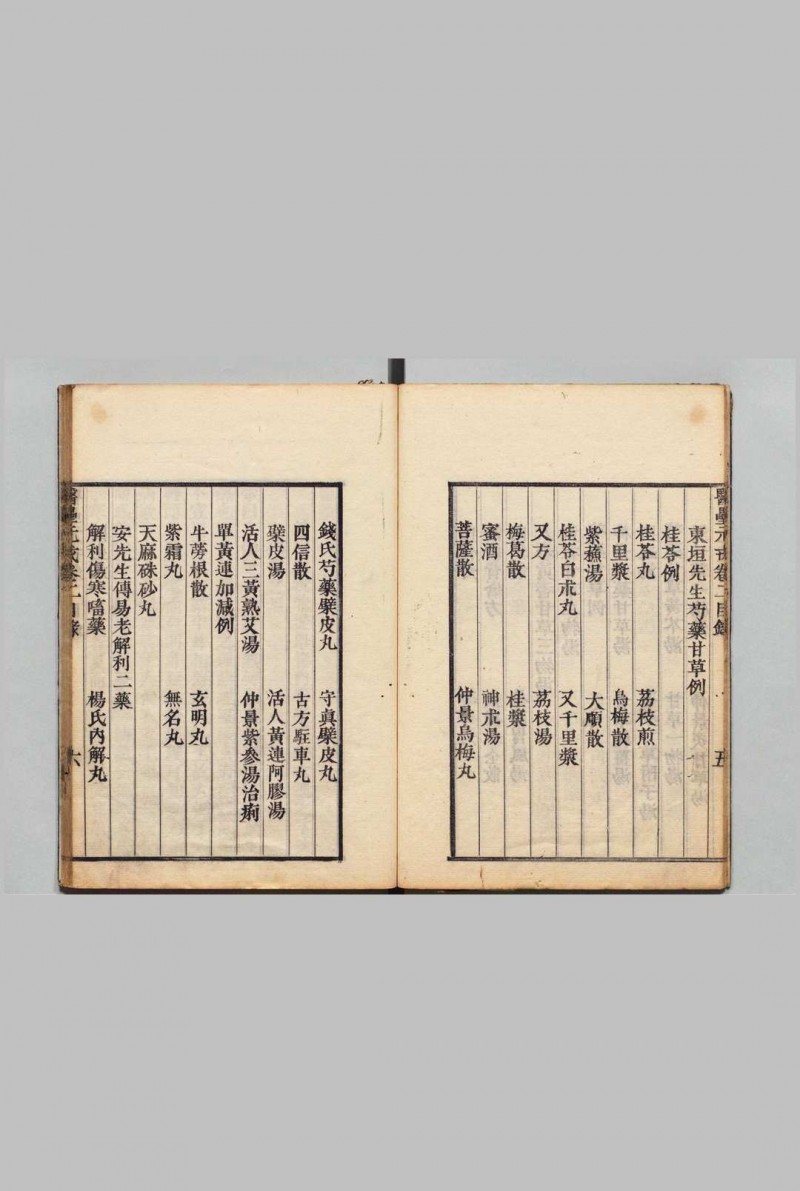 醫壘元戎卷二目錄 五
東垣先生芍藥甘草例
桂苓例
桂苓丸 荔枝煎
千里漿 烏梅散
紫蘇湯 大順散
桂苓白朮丸 又千里漿
又方 荔枝湯
梅葛散 桂漿
蜜酒 神朮湯
菩薩散 仲景烏梅丸
錢氏芍藥糵皮丸 守真糵皮丸
四信散 古方駐車丸
糵皮湯 活人黃連阿膠湯
活人三黃熟艾湯 仲景紫參湯治痢
單黃連加減例
牛蒡根散 玄明丸
紫霜丸 無名丸
天麻硃砂丸
安先生傳易老解利二藥
解利傷寒嚏藥 楊氏內解丸
醫壘元戎卷二目錄 六